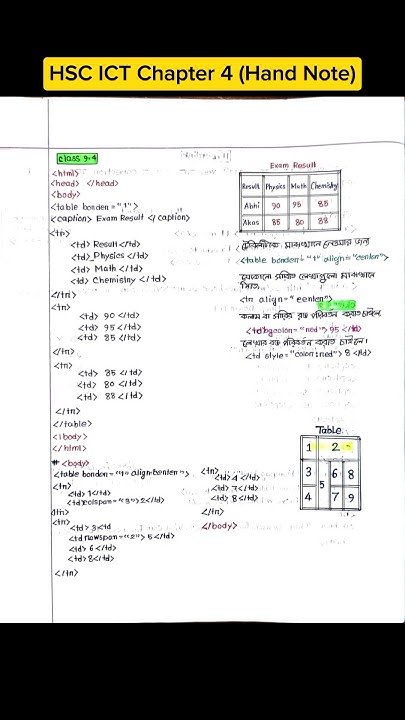 HSC ICT Chapter 4 (Hand Note)
class 9.4
<html>
<head> </head>
<body>
<table bonden = "1">
<caption> Exam Result </caption>
<tn>
<td> Result </td>
<td> Physics </td>
<td> Math </td>
<td> Chemistny </td>
</tn>
<tn>
<td> 90 </td>
<td> 95 </td>
<td> 85 </td>
</tn>
<tn>
<td> 85 </td>
<td> 80 </td>
<td> 88 </td>
</tn>
</table>
<body>
</html>
Exam Result
Result Physics Math Chemistny
Abhi 90 95 85
Akas 85 80 88
টেবিলটিকে মাঝখানে নেওয়ার জন্য
<table bonden = "1" align = "centen">
যেকোনো সারির লেখাগুলো মাঝখানে
নিতে
<tn align = "centen">
কলাম বা সারির রঙ পরিবর্তন করতে চাইলে
<td bgcolon = "ned"> 95 </td>
লেখার রঙ পরিবর্তন করতে চাইলে।
<td style="colon:ned"> 8 </td>
# <body>
<table bonden = "1" align-"centen">
<tn>
<td> 1 </td>
<td colspan = "3"> 2 </td>
</tn>
<tn>
<td> 3 <td
<td nowspan = "2"> 5 </td>
<td> 6 </td>
<td> 8 </td>
</tn>
<tn>
<td> 4 </td>
<td> 7 </td>
<td> 8 </td>
</tn>
</body>
Table
1 2
3 5 6 8
4 7 9